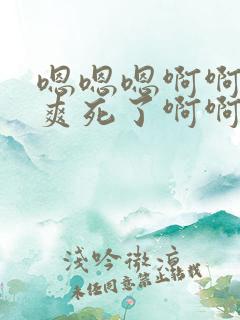 嗯嗯嗯啊啊
爽死了啊啊
淺吟微涼
未经同意禁止转载